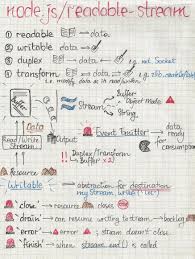 node.js/readable-stream
① readable → data
② writable → data
③ duplex → data e.g. net.Socket
④ transform → data
Buffer
Object mode
Stream
String
Data
Output
Event Emitter
data ready for consumption
Read/Write Stream
Duplex/Transform
Buffer x2!
Writable → abstraction for destination
'close' → resource closed
'drain' → can resume writing to stream → backlog
'error' → error → stream doesn't close
'finish' → when stream.end() is called